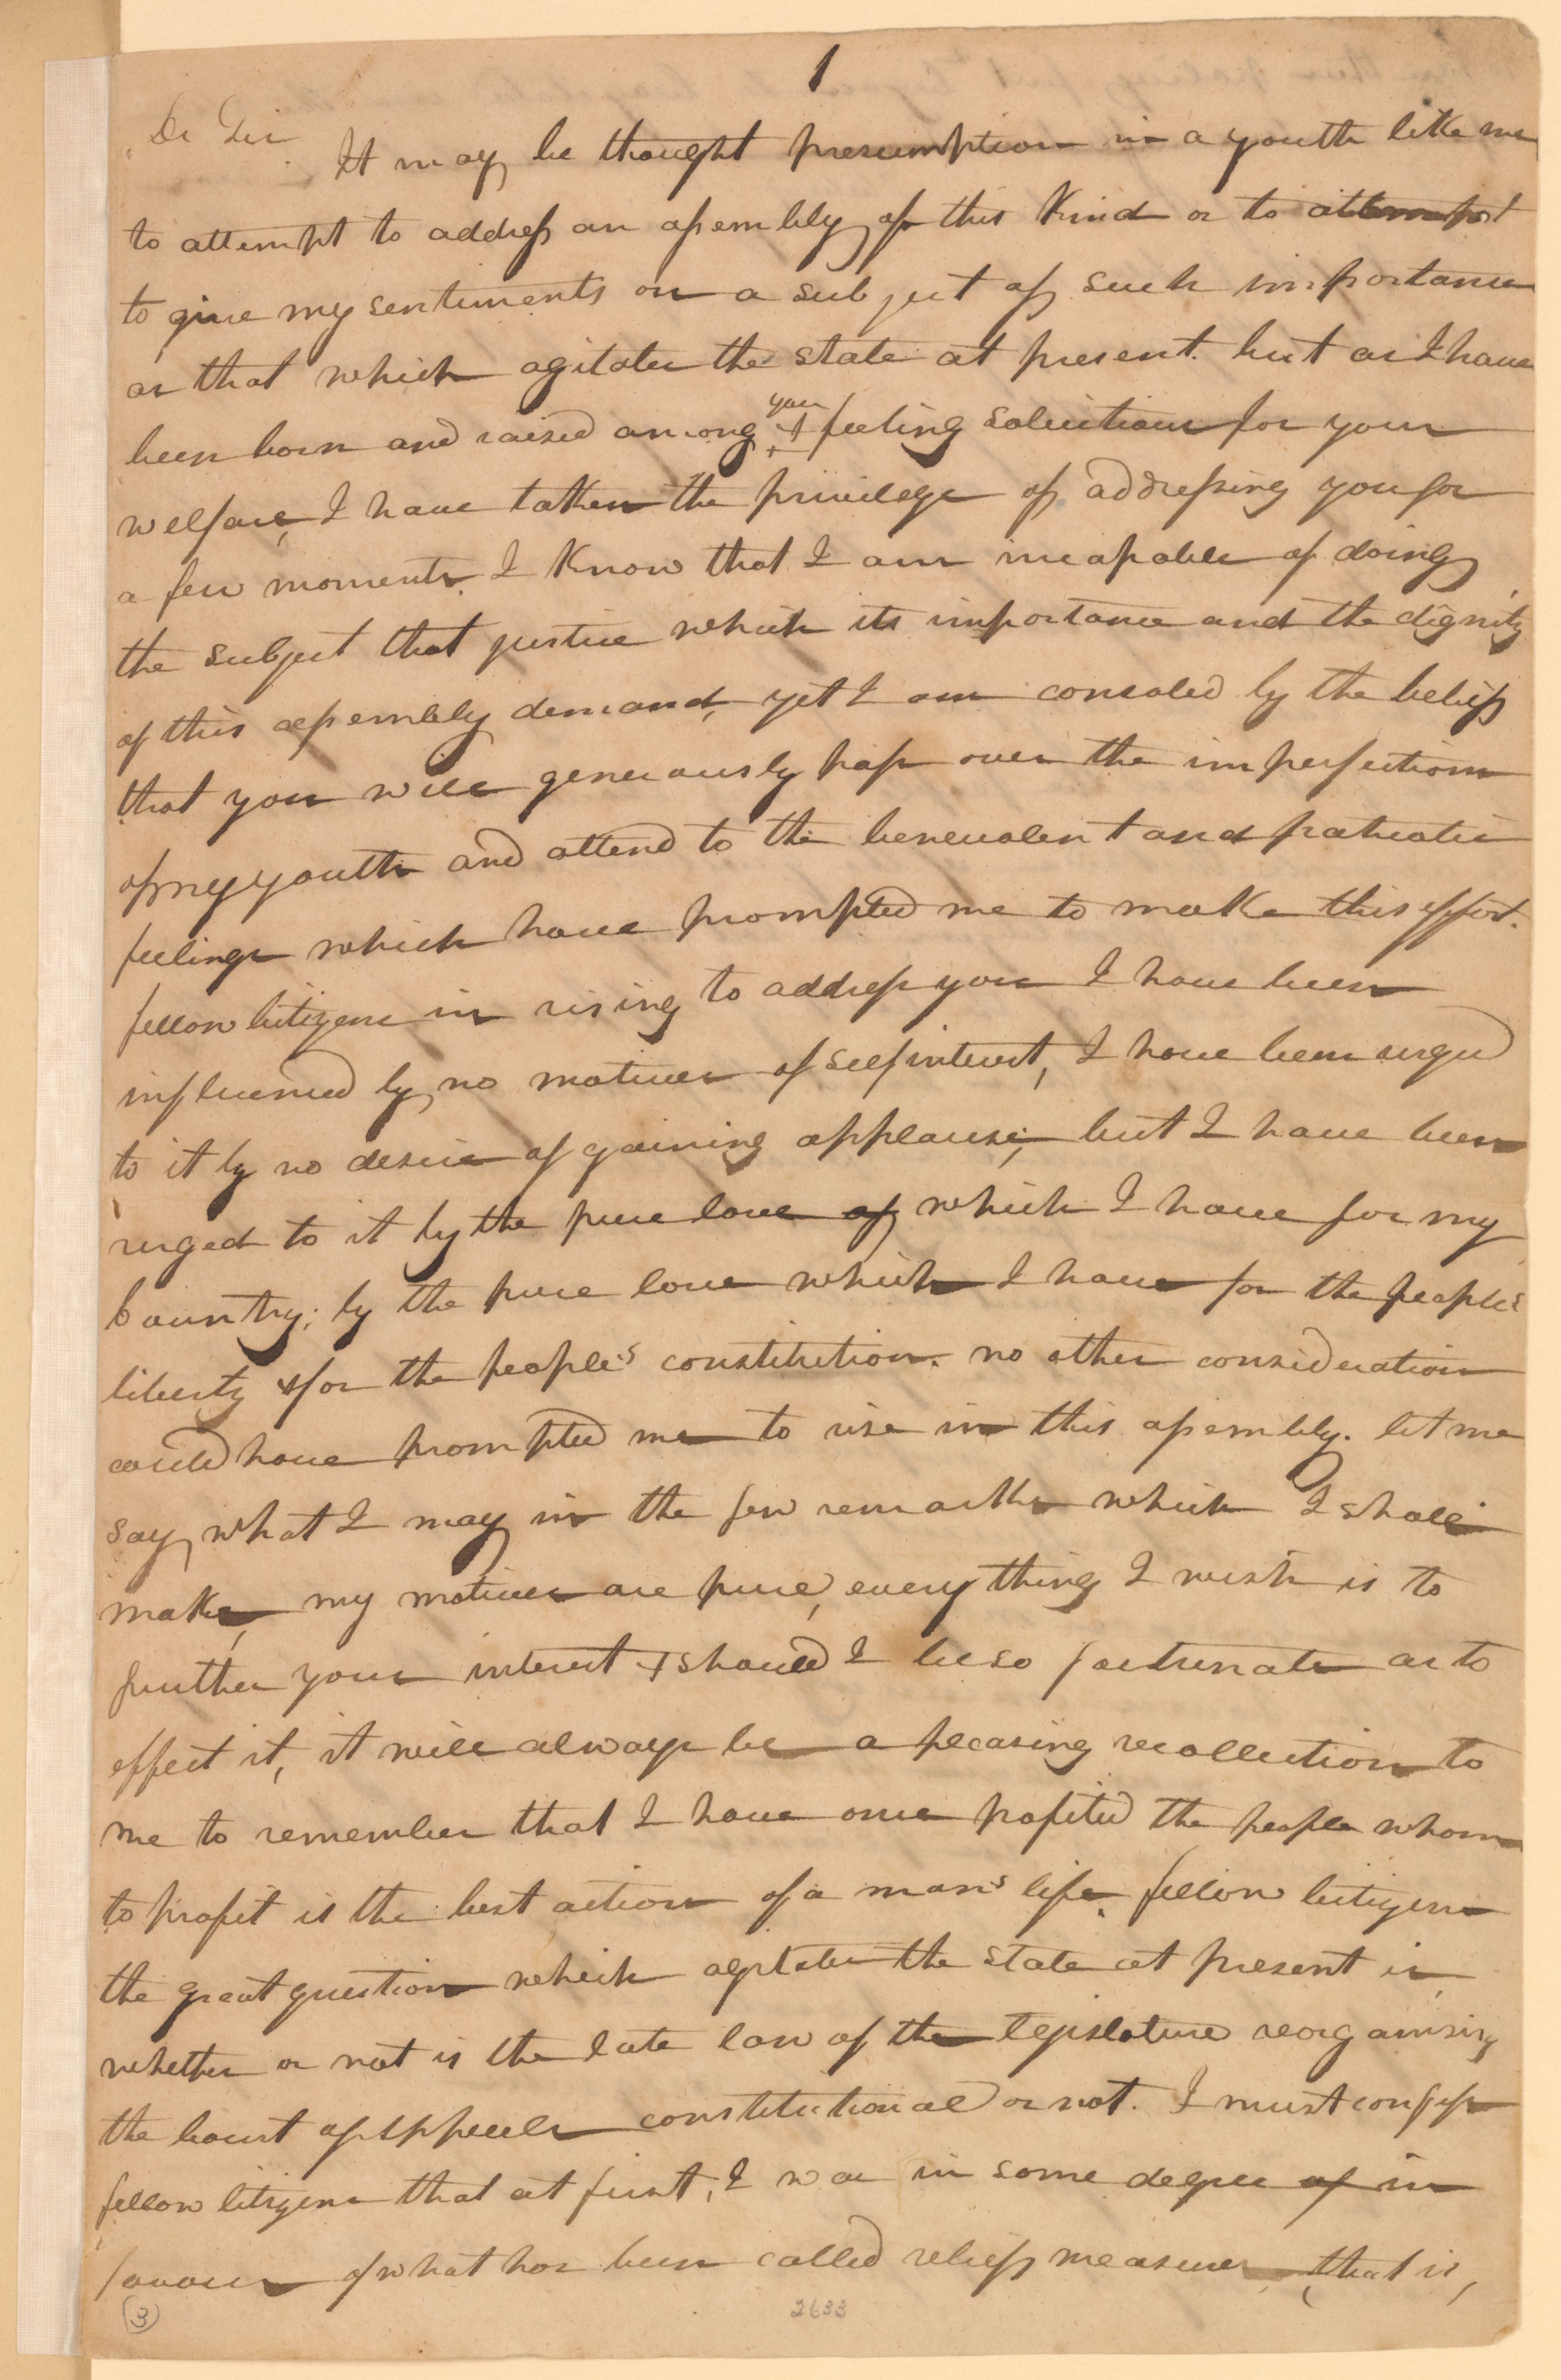 1
Dr Sir
It may be thought presumption in a youth like me
to attempt to address an assembly of this kind or to attempt
to give my sentiments on a subject of such importance
as that which agitates the state at present. but as I have
been born and raised among you & feeling solicitious for your
welfare, I have taken the privilege of addressing you for
a few moments. I know that I am incapable of doing
the subject that justice which its importance and the dignity
of this assembly demand, yet I am consoled by the belief
that you will generously pass over the imperfections
of my youth and attend to the benevolent and patriotic
feelings which have prompted me to make this effort.
fellow Citizens in rising to address you I have been
influenced by no motives of self interest, I have been urged
to it by no desire of gaining applause; but I have been
urged to it by the pure love of which I have for my
Country; by the pure love which I have for the people's
liberty & for the people's constitution. no other consideration
could have prompted me to rise in this assembly. let me
say what I may in the few remarks which I shall
make, my motives are pure, every thing I wish is to
further your interest & should I be so fortunate as to
effect it, it will always be a pleasing recollection to
me to remember that I have once profited the people whom
to profit is the best action of a man's life. fellow Citizens
the great question which agitates the state at present is
whether or not is the late law of the legislature reorganising
the Court of Appeals constitutional or not. I must confess
fellow Citizens that at first, I was in some degree of in
favour of what has been called relief measures, that is,
3
2633